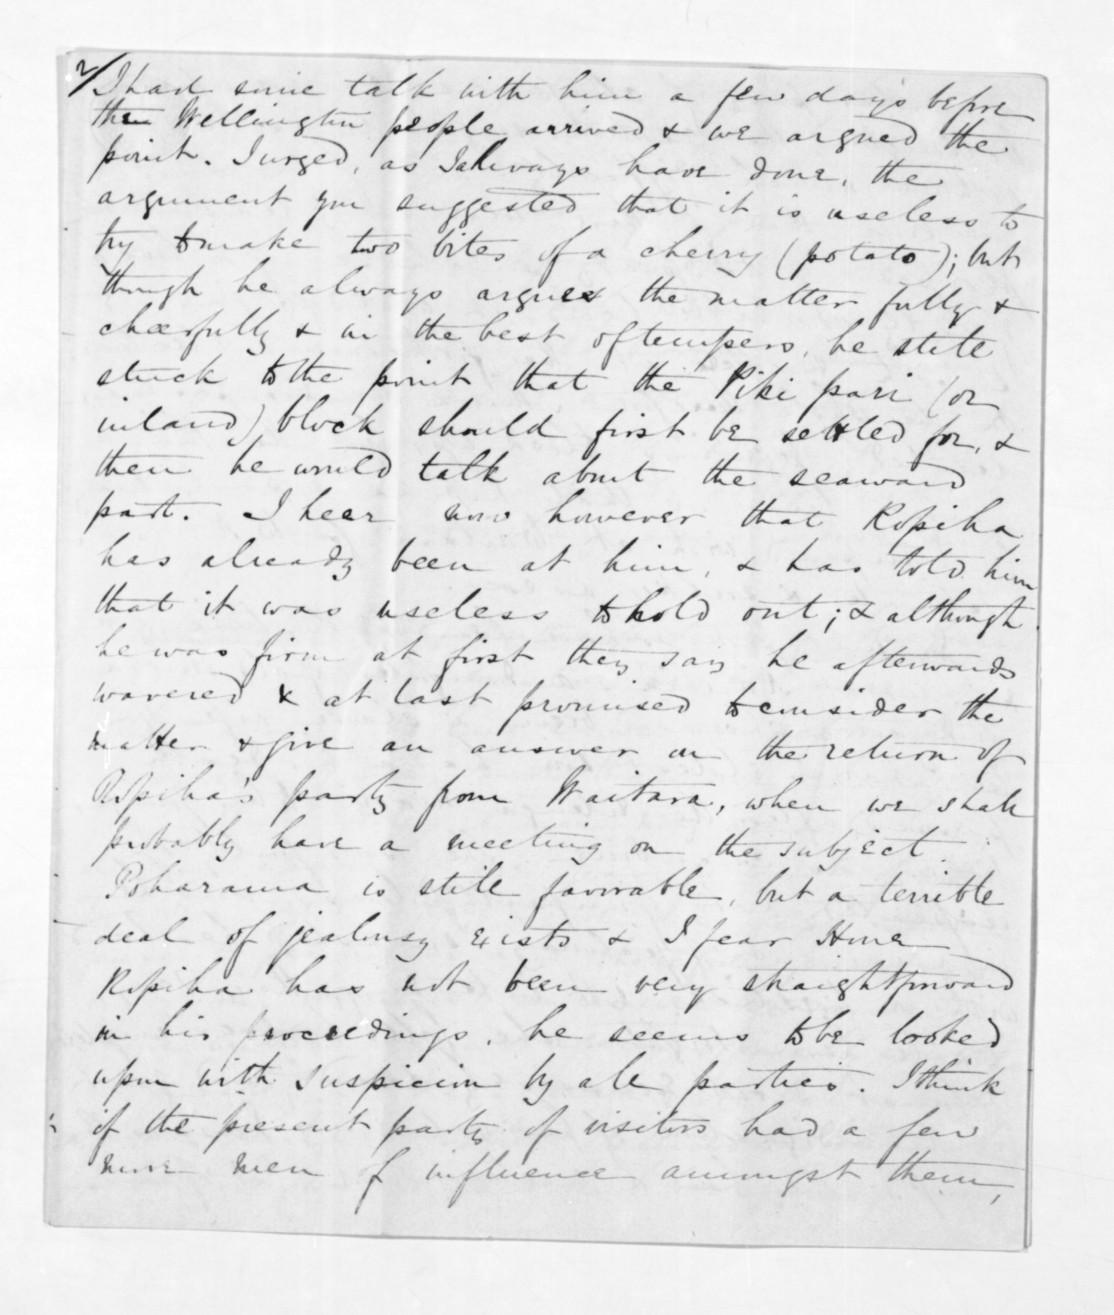 2/ I had some talk with him a few days before
these Wellington people arrived & we argued the
point. I urged, as I always have done, the
argument you suggested that it is useless to
try to make two bites of a cherry (potato); but
though he always argues the matter fully &
cheerfully & in the best of tempers, he still
stuck to the point that the Piki pari (or
inland) block should first be settled for, &
then he would talk about the seaward
part. I hear now however that Ropiha
has already been at him, & has told him
that it was useless to hold out; & although
he was firm at first they say he afterwards
wavered & at last promised to consider the
matter & give an answer on the return of
Ropiha's party from Waitara, when we shall
probably have a meeting on the subject.
Poharama is still favorable, but a terrible
deal of jealousy exists & I fear Hone
Ropiha has not been very straightforward
in his proceedings. he seems to be looked
upon with suspicion by all parties. I think
if the present party of visitors had a few
more men of influence amongst them,